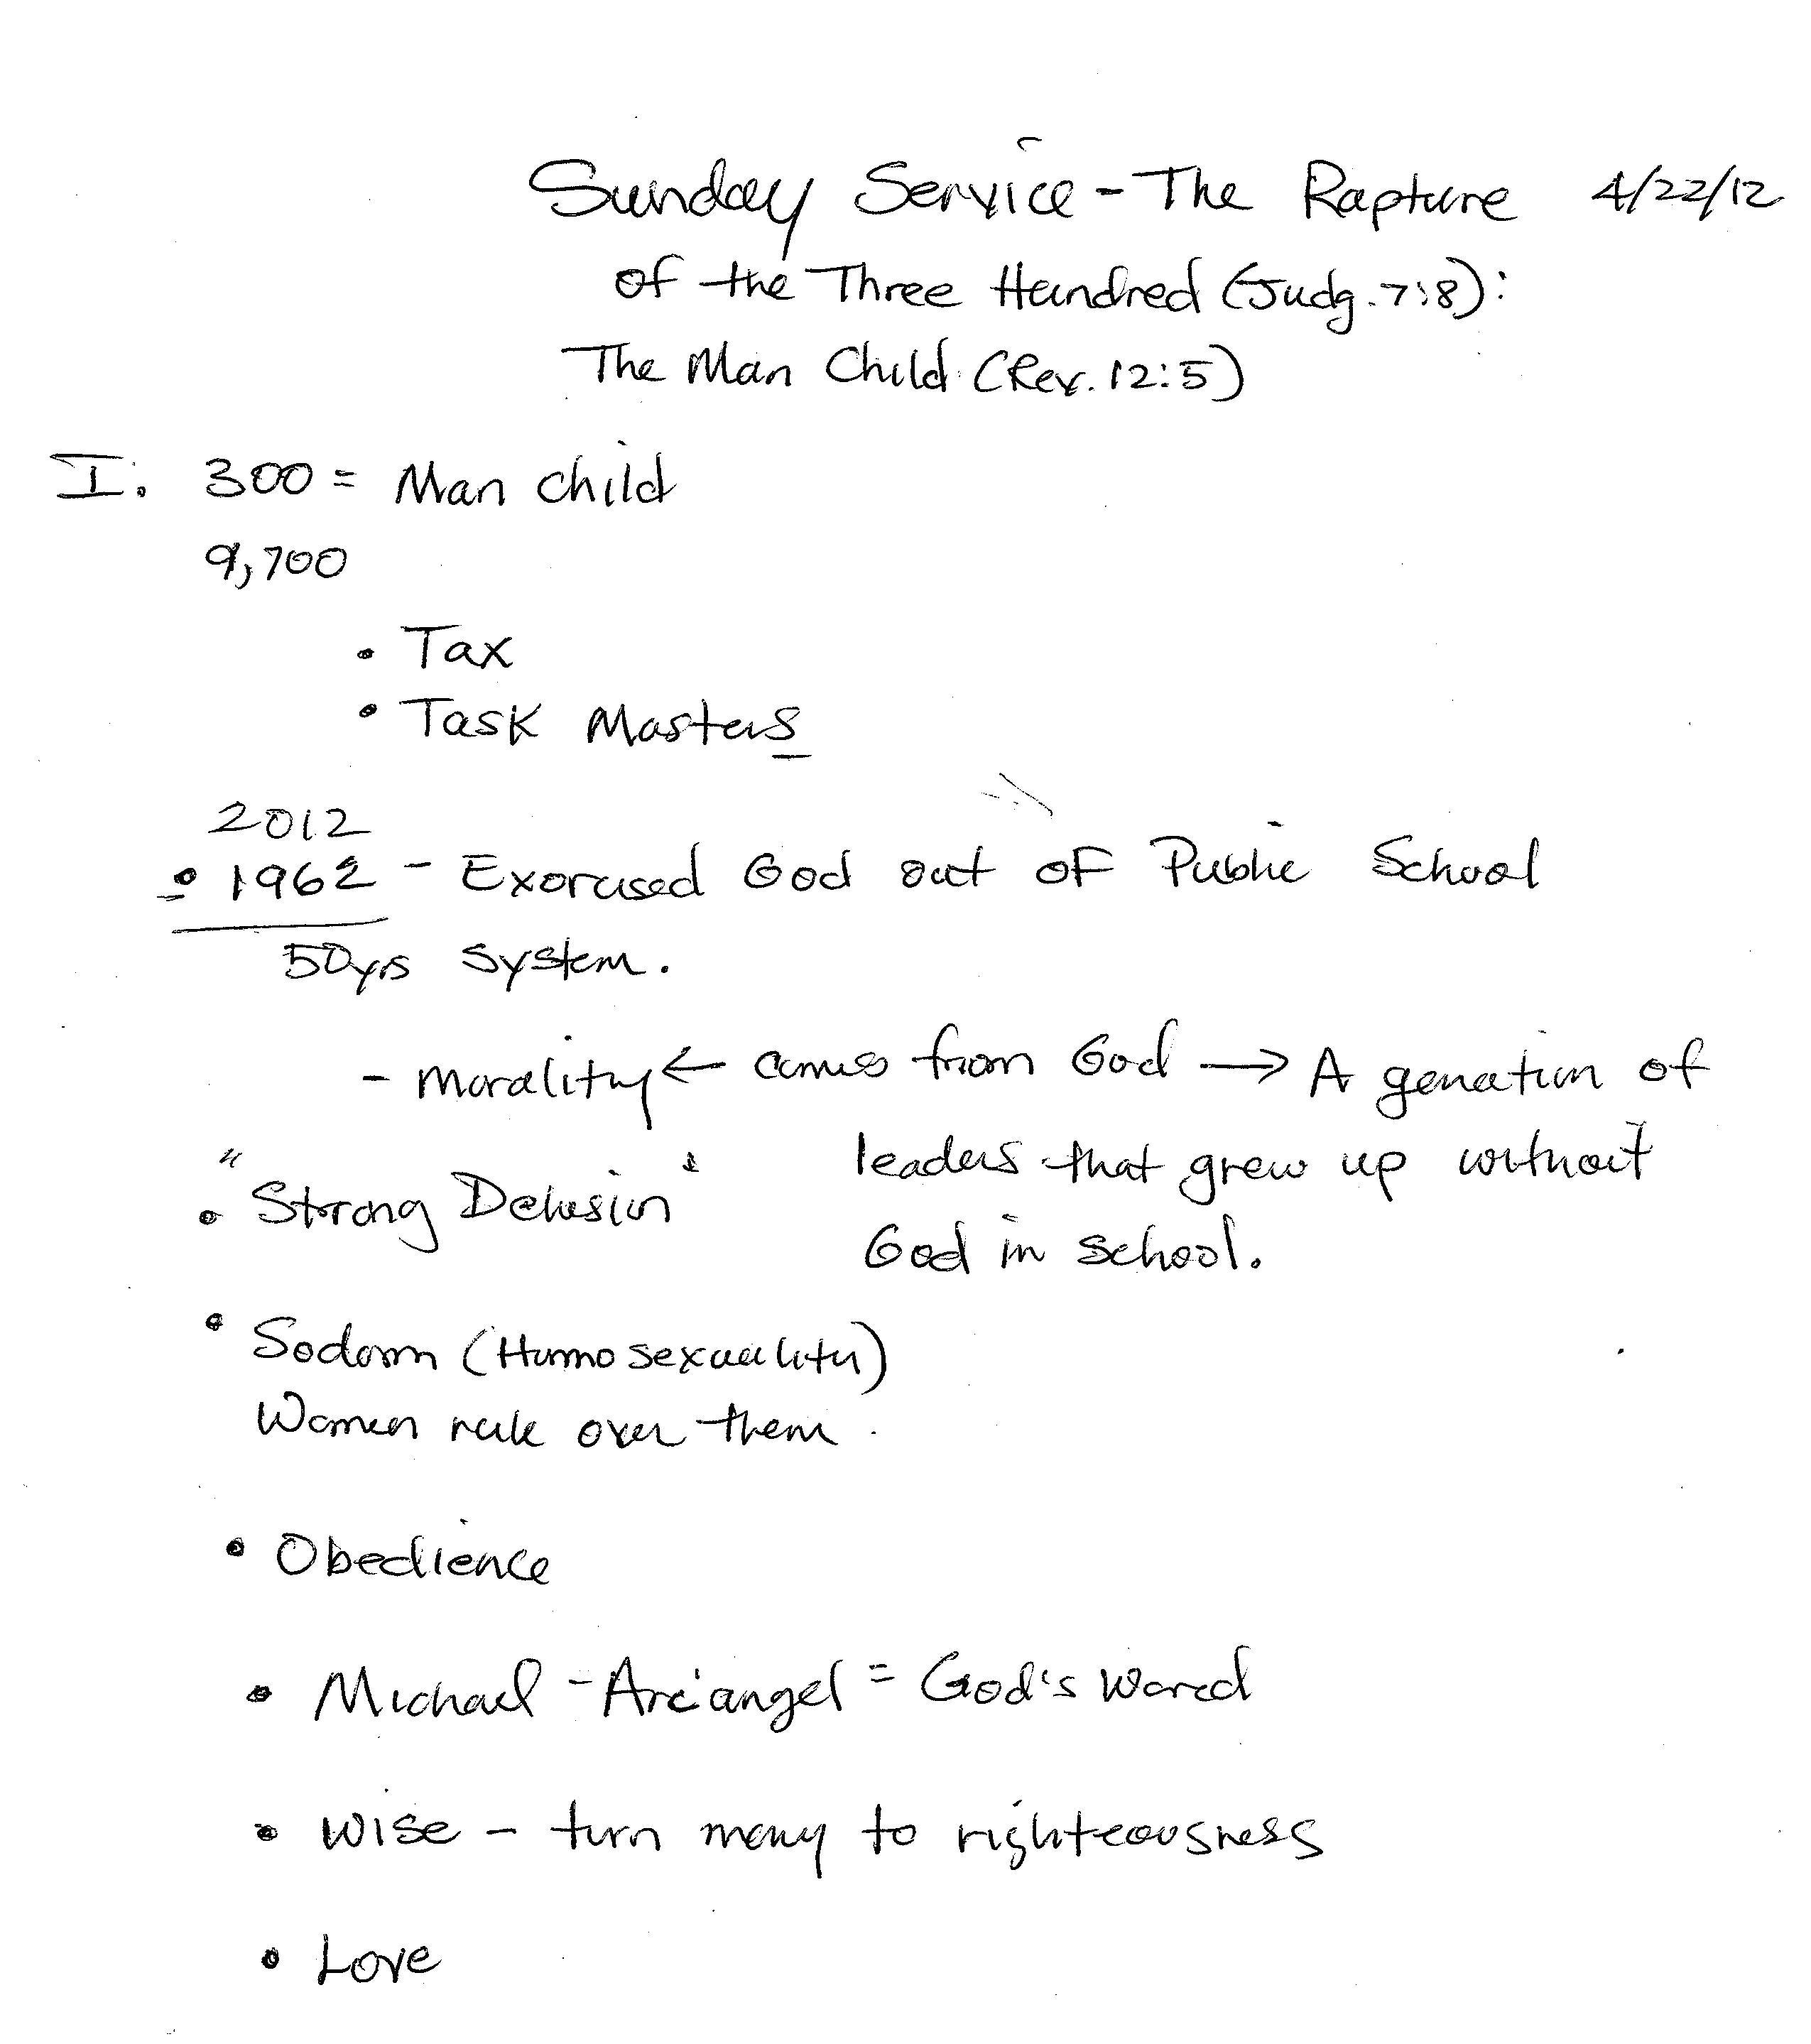 Sunday Service - The Rapture 4/22/12
of the Three Hundred (Judg. 7:8):
The Man Child (Rev. 12:5)
I. 300 = Man child
9,700
• Tax
• Task Masters
2012
• 1962 - Exorcised God out of Public School
50yrs system.
- Morality ← comes from God → A genation of
leaders that grew up without
• "Strong Delusion"
God in school.
• Sodom (Homosexuality)
Women rule over them.
• Obedience
• Michael - Arc'angel = God's Word
• Wise - turn many to righteousness
• Love